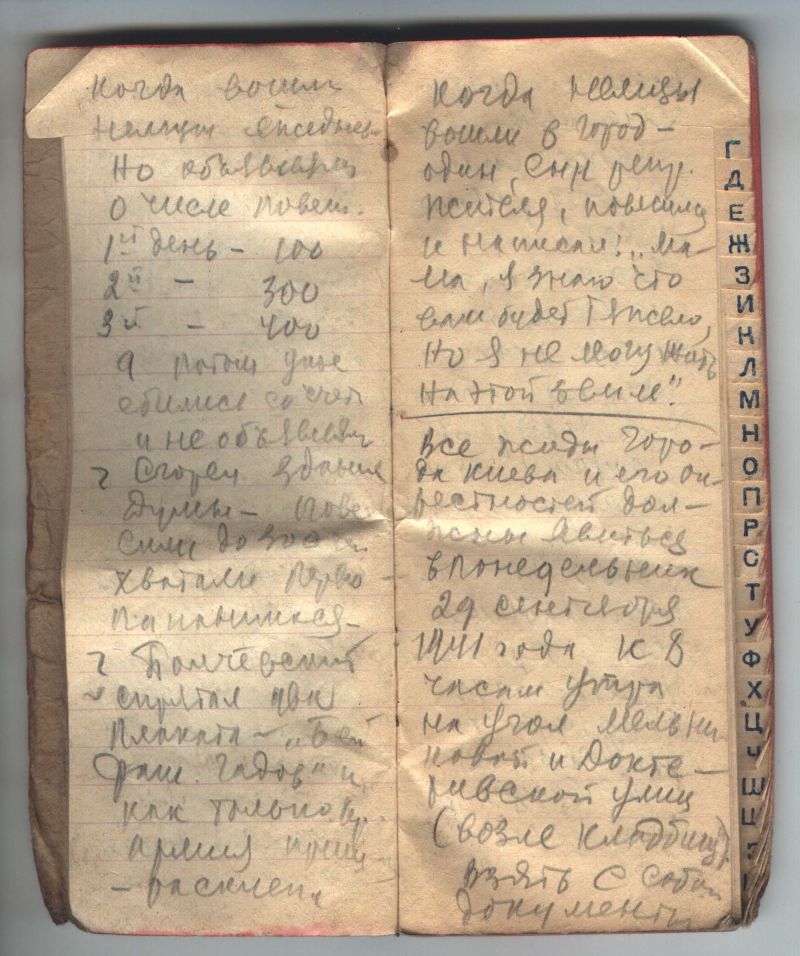 Когда вошли
немцы ежеднев-
но объявляли
о числе повеш.
1ый день – 100
2й – 300
3й – 400
а потом уже
сбились со счета
и не объявляли
Сгорел здание
Думы – пове
сили до 300
хватали перво –
попавшихся –
спрятал два
плаката – „Бей
фаш. гадов" и
как только кр.
армия пришла
– расклеил
Когда немцы
вошли в город –
один, сын репр.
жителя, повесился
и написал: „Ма-
ма, я знаю что
вам будет тяжело,
но я не могу жить
на этой земле".
Все жиды горо-
да Киева и его ок-
рестностей дол-
жны явиться
в понедельник
29 сентября
1941 года к 8
часам утра
на угол Мельни
ковой и Докте –
ривской улиц
(возле кладбищ).
взять с собой
документы
Г
Д
Е
Ж
З
И
К
Л
М
Н
О
П
Р
С
Т
У
Ф
Х
Ц
Ч
Ш
Щ